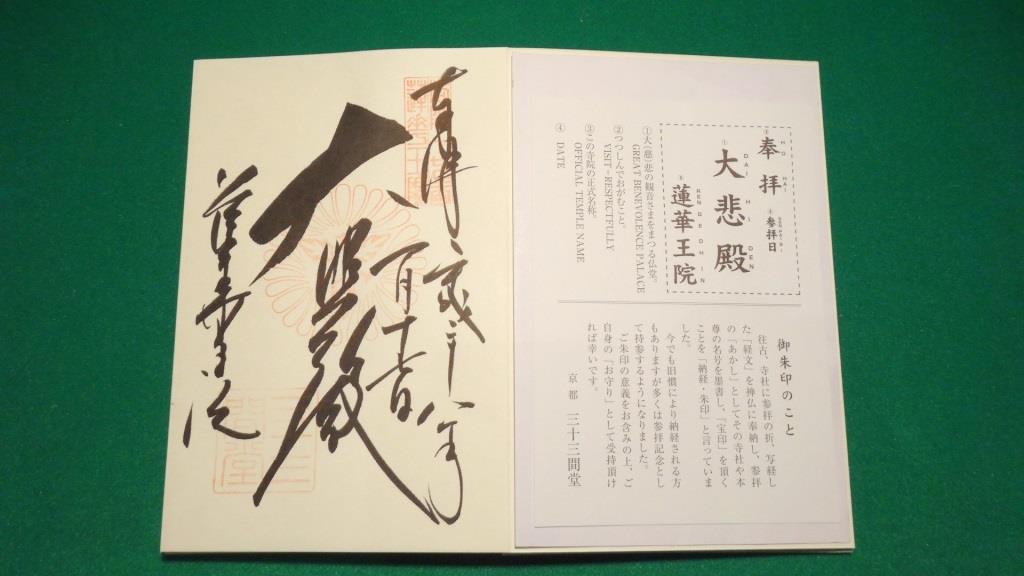 奉拝
平成二十八年
一月十七日
大悲殿
蓮華王院
②奉拝
HO HAI
④参拝日
①大悲殿
DAI HI DEN
③蓮華王院
REN GE OH IN
①大(慈)悲の観音さまをまつる仏堂。
GREAT BENEVOLENCE PALACE
②つつしんでおがむこと。
VISIT-RESPECTFULLY
③この寺院の正式名称。
OFFICIAL TEMPLE NAME
④
DATE
御朱印のこと
往古、寺社に参拝の折、写経し
た「経文」を神仏に奉納し、参拝
の「あかし」としてその寺社や本
尊の名号を墨書し、「宝印」を頂く
ことを「納経・朱印」と言っていま
した。
今でも旧慣により納経される方
もありますが多くは参拝記念とし
て持参するようになりました。
ご朱印の意義をお含みの上、ご
自身の「お守り」として受持頂け
れば幸いです。
京都 三十三間堂